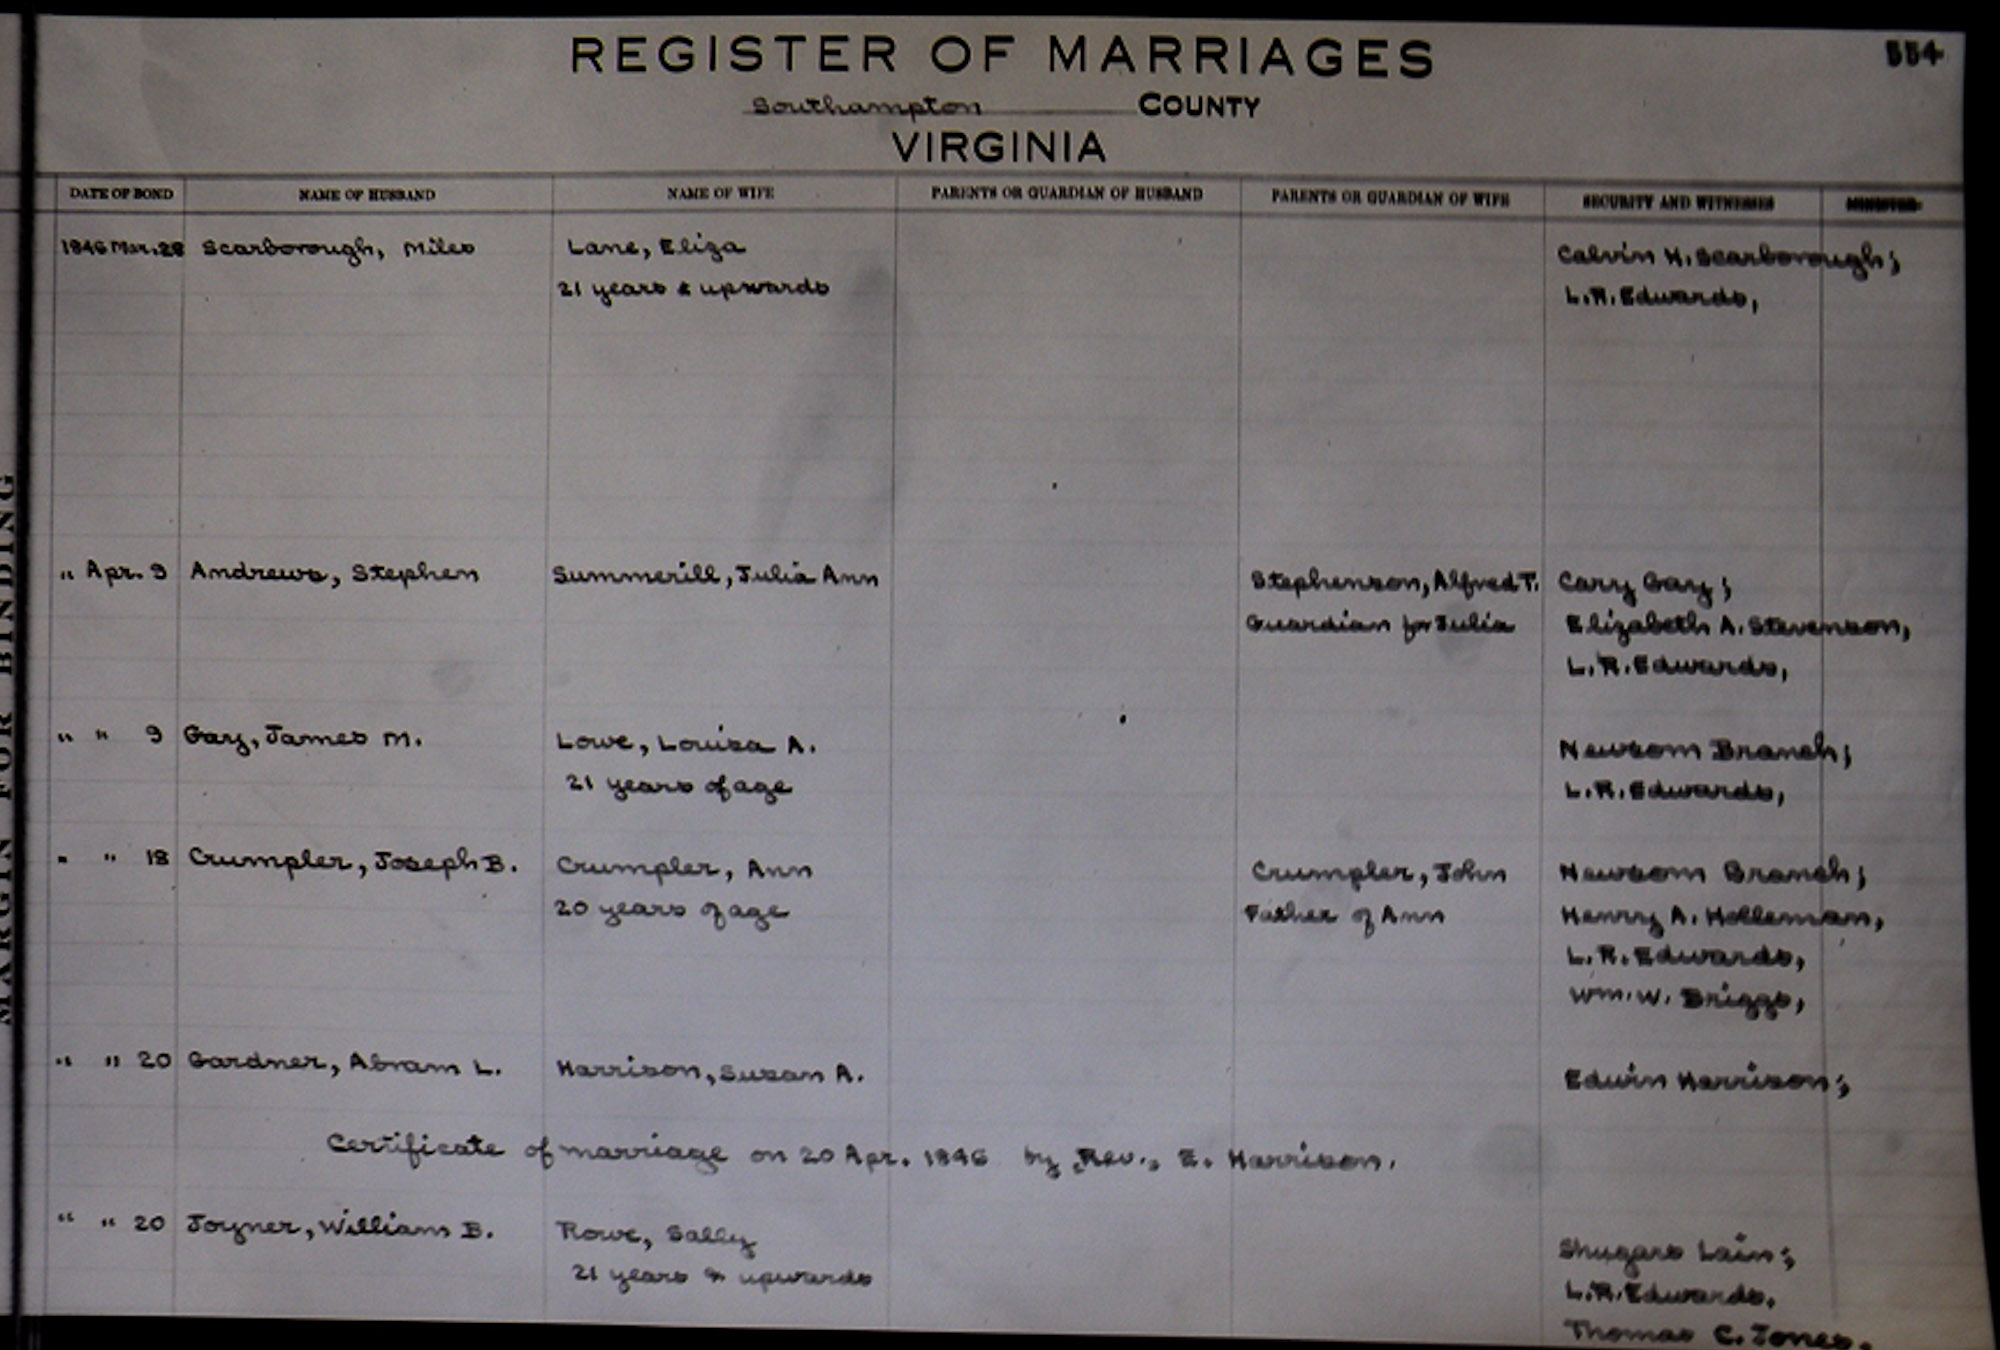 REGISTER OF MARRIAGES
554
Southampton COUNTY
VIRGINIA
DATE OF BOND NAME OF HUSBAND NAME OF WIFE PARENTS OR GUARDIAN OF HUSBAND PARENTS OR GUARDIAN OF WIFE SECURITY AND WITNESSES MINISTER
1846 Mar. 28 Scarborough, Miles Lane, Eliza Calvin H. Scarborough;
21 years & upwards L.R. Edwards,
" Apr. 9 Andrews, Stephen Summerill, Julia Ann Stephenson, Alfred T. Cary Gay;
Guardian for Julia Elizabeth A. Stevenson,
L.R. Edwards,
" " 9 Gay, James M. Lowe, Louisa A. Newsom Branch;
21 years of age L.R. Edwards,
" " 18 Crumpler, Joseph B. Crumpler, Ann Crumpler, John Newsom Branch;
20 years of age Father of Ann Henry A. Holleman,
L.R. Edwards,
Wm. W. Briggs,
" " 20 Gardner, Abram L. Harrison, Susan A. Edwin Harrison;
Certificate of marriage on 20 Apr. 1846 by, Rev., E. Harrison.
" " 20 Joyner, William B. Rowe, Sally Shugars Lain;
21 years & upwards L.R. Edwards.
Thomas C. Jones.
MARGIN FOR BINDING